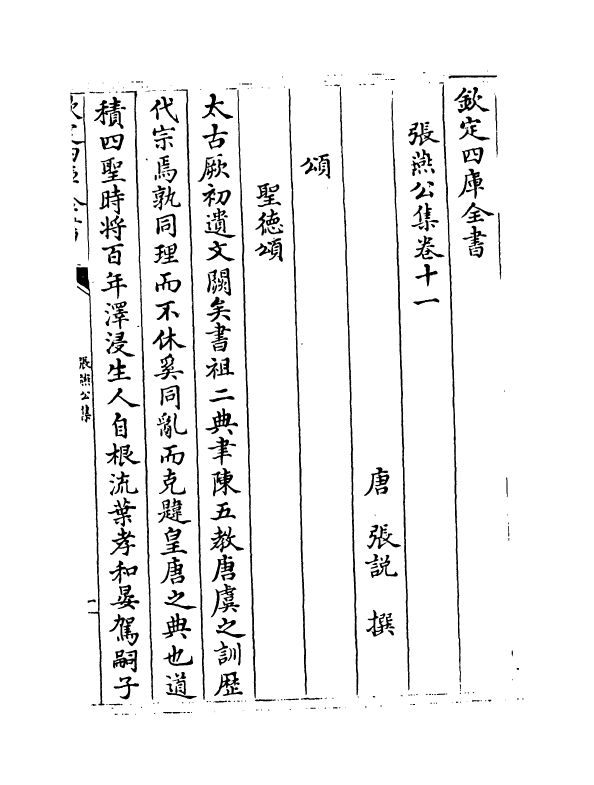 欽定四庫全書
張燕公集卷十一
唐 張説 撰
頌
聖德頌
太古厥初遺文闕矣書祖二典聿陳五教唐虞之訓歴
代宗焉孰同理而不休奚同亂而克韙皇唐之典也道
積四聖時将百年澤浸生人自根流葉孝和晏駕嗣子
張燕公集
一